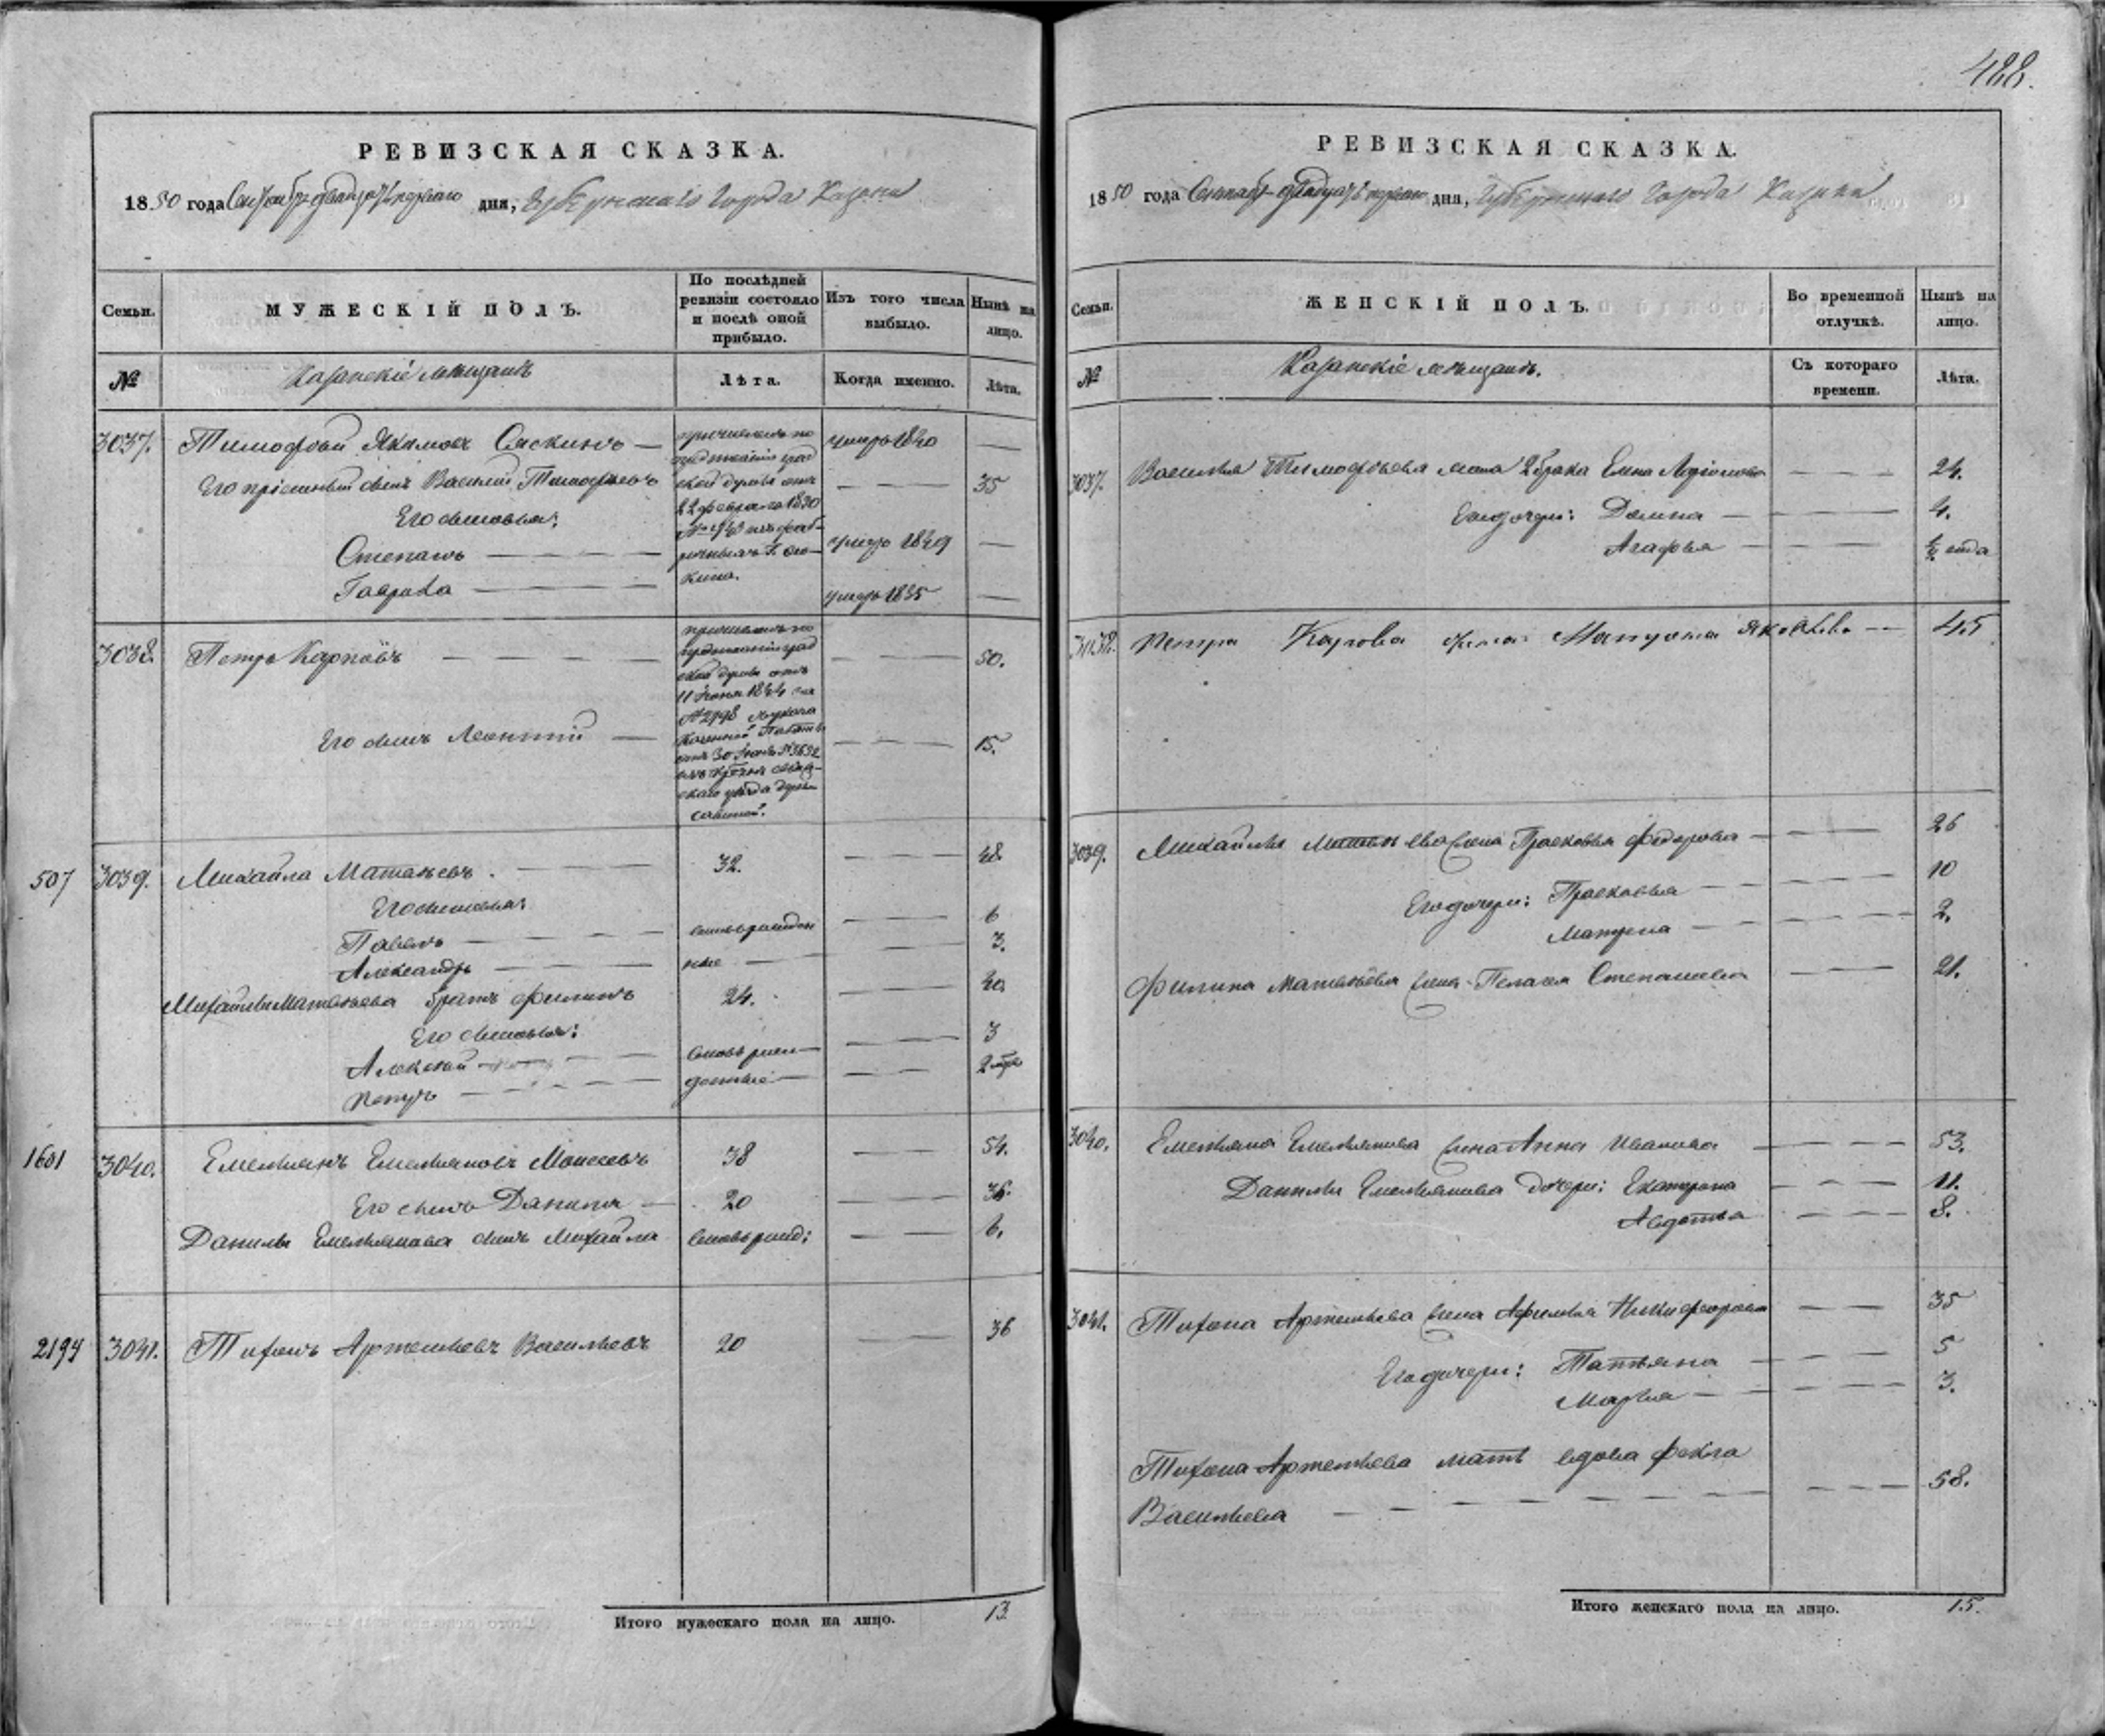 488.
РЕВИЗСКАЯ СКАЗКА.
1850 года Сентября двадцать перваго дня, Губернскаго Города Казани
Семьи.
МУЖЕСКІЙ ПОЛЪ.
По послѣдней ревизіи состояло и послѣ оной прибыло.
Изъ того числа выбыло.
Нынѣ на лицо.
№
Казанскіе мѣщанѣ
Лѣта.
Когда именно.
Лѣта.
3037. Тимофѣй Якимовъ Саскинъ — умеръ 1840 —
причисленъ по
предписанію град
ской думы отъ
22 февраля 1830
Его пріемный сынъ Василій Тимофѣевъ — 35
Его сыновья:
Степанъ — умеръ 1849 —
Гаврила — умеръ 1835 —
3038. Петръ Карповъ — 50.
причисленъ по
предписанію град
ской думы отъ
Его сынъ Леонтій — 15.
507 3039. Михайла Матвѣевъ. — 32. — 48
Его сыновья:
Павелъ — вновь рожден — 6
Александръ — ные — 3.
Михайлы Матвѣева братъ Филипъ 24. — 40
Его сыновья:
Алексѣй — вновь рож — 3
Петръ — денные — 2 мѣс
1601 3040. Емельянъ Емельяновъ Моисеевъ 38 — 54.
Его сынъ Данила — 20 — 36.
Данилы Емельянова сынъ Михайла вновь рожд: — 6.
2194 3041. Тихонъ Артемьевъ Васильевъ 20 — 36
Итого мужескаго пола на лицо. 13.
РЕВИЗСКАЯ СКАЗКА.
1850 года Сентября двадцать перваго дня, Губернскаго Города Казани
Семьи.
ЖЕНСКІЙ ПОЛЪ.
Во временной отлучкѣ.
Нынѣ на лицо.
№
Казанскіе мѣщанѣ.
Съ котораго времени.
Лѣта.
3037. Василья Тимофѣева жена 2 брака Елена — 24.
Его дочери: Домна — 4.
Агафья — ½ года
3038. Петра Карпова жена Матрена Яковлева — 45
3039. Михайлы Матвѣева жена Прасковья Федорова — 26
Его дочери: Прасковья — 10
Матрена — 2.
Филипа Матвѣева жена Пелагея Степанова — 21.
3040. Емельяна Емельянова жена Анна Иванова — 53.
Данилы Емельянова дочери: Екатерина — 11.
Авдотья — 8.
3041. Тихона Артемьева жена Афимья Никифорова — 35
Его дочери: Татьяна — 5
Марья — 3.
Тихона Артемьева мать вдова Фекла
Васильева — 58.
Итого женскаго пола на лицо. 15.